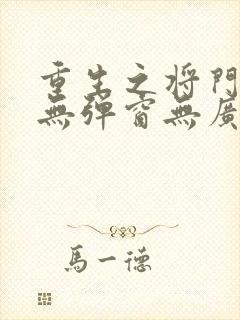 重生之将門
無弹窗無廣
馬一德